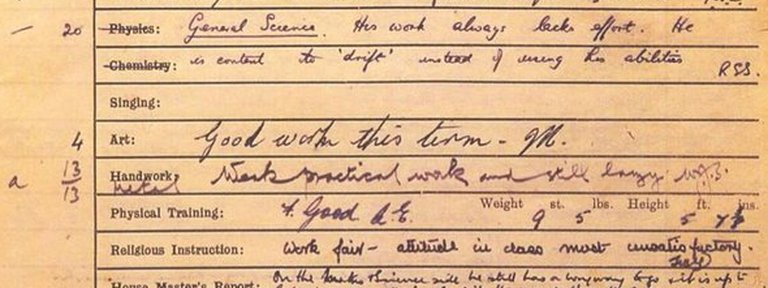 — 20 Physics: General Science. His work always lacks effort. He
Chemistry: is content to 'drift' instead of using his abilities RSS.
Singing:
4 Art: Good work this term -
a 13/13 Handwork: Metal Weak practical work and still lazy
Physical Training: Good Weight 9 st. 5 lbs. Height 5 ft. 7 ins.
Religious Instruction: Work fair - attitude in class most unsatisfactory.
House Master's Report: On the Maths & Science side he still has a long way to go & it is up to